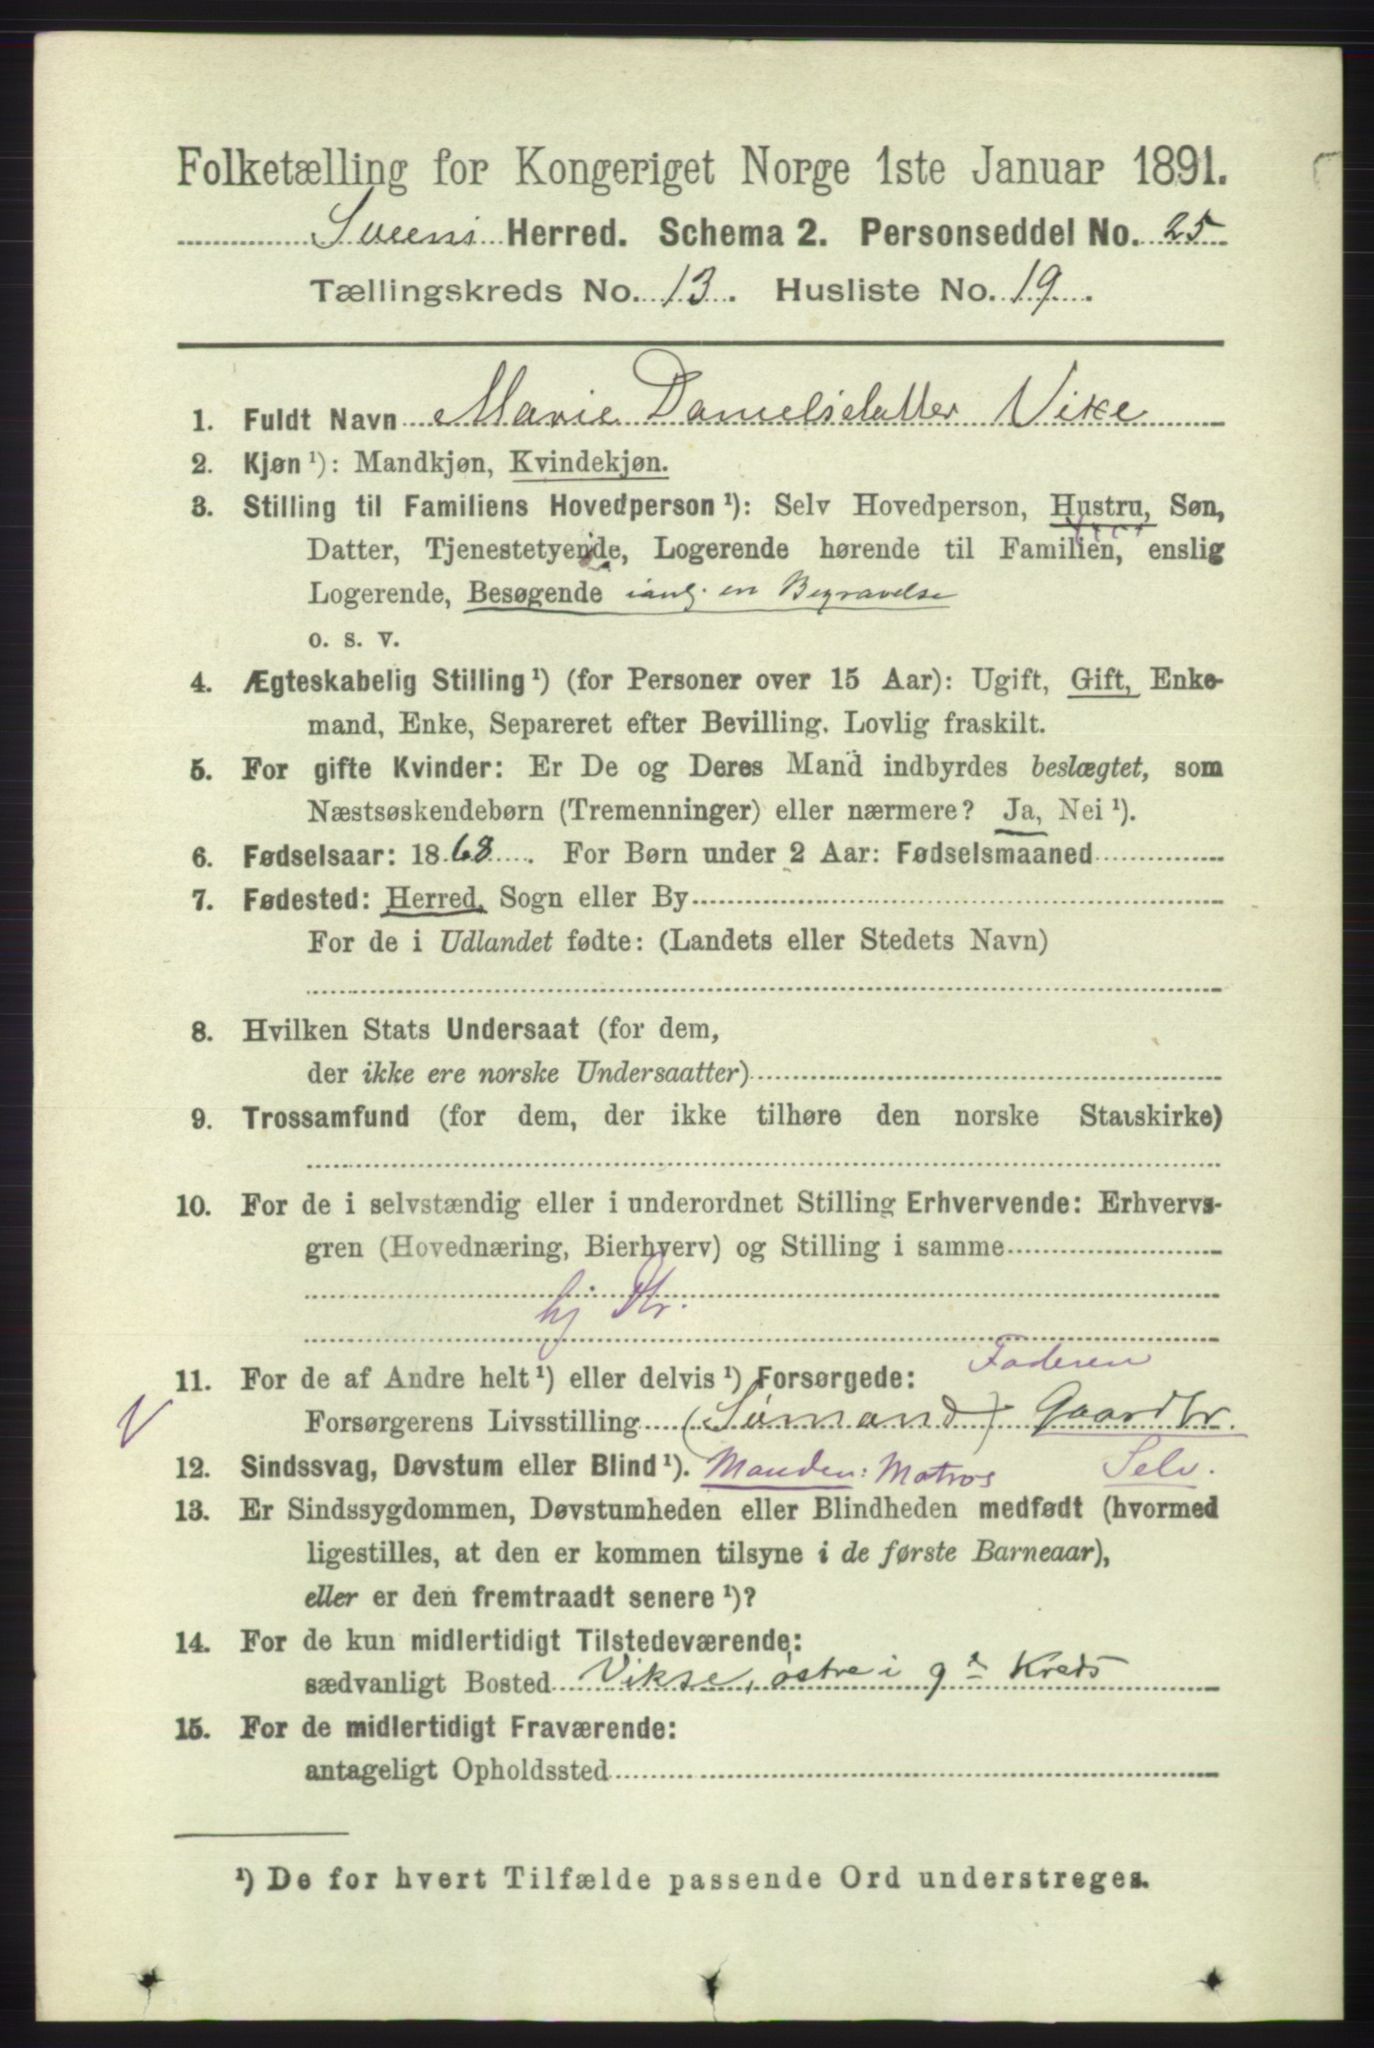 Folketælling for Kongeriget Norge 1ste Januar 1891.
Sveens Herred. Schema 2. Personseddel No. 25
Tællingskreds No. 13. Husliste No. 19.
1. Fuldt Navn Marie Danielsdatter Vikse
2. Kjøn ¹): Mandkjøn, Kvindekjøn.
3. Stilling til Familiens Hovedperson ¹): Selv Hovedperson, Hustru, Søn,
Datter, Tjenestetyende, Logerende hørende til Familien, enslig
Logerende, Besøgende ianl. en Begravelse
o. s. v.
4. Ægteskabelig Stilling ¹) (for Personer over 15 Aar): Ugift, Gift, Enke-
mand, Enke, Separeret efter Bevilling. Lovlig fraskilt.
5. For gifte Kvinder: Er De og Deres Mand indbyrdes beslægtet, som
Næstsøskendebørn (Tremenninger) eller nærmere? Ja, Nei ¹).
6. Fødselsaar: 1868. For Børn under 2 Aar: Fødselsmaaned
7. Fødested: Herred, Sogn eller By
For de i Udlandet fødte: (Landets eller Stedets Navn)
8. Hvilken Stats Undersaat (for dem,
der ikke ere norske Undersaatter)
9. Trossamfund (for dem, der ikke tilhøre den norske Statskirke)
10. For de i selvstændig eller i underordnet Stilling Erhvervende: Erhvervs-
gren (Hovednæring, Bierhverv) og Stilling i samme
hj Dtr.
Faderen
11. For de af Andre helt ¹) eller delvis ¹) Forsørgede:
Forsørgerens Livsstilling (Sømand) Gaardbr.
12. Sindssvag, Døvstum eller Blind ¹). Manden: Matros Selv.
13. Er Sindssygdommen, Døvstumheden eller Blindheden medfødt (hvormed
ligestilles, at den er kommen tilsyne i de første Barneaar),
eller er den fremtraadt senere ¹)?
14. For de kun midlertidigt Tilstedeværende:
sædvanligt Bosted Vikse, østre i 9de Kreds
15. For de midlertidigt Fraværende:
antageligt Opholdssted
¹) De for hvert Tilfælde passende Ord understreges.